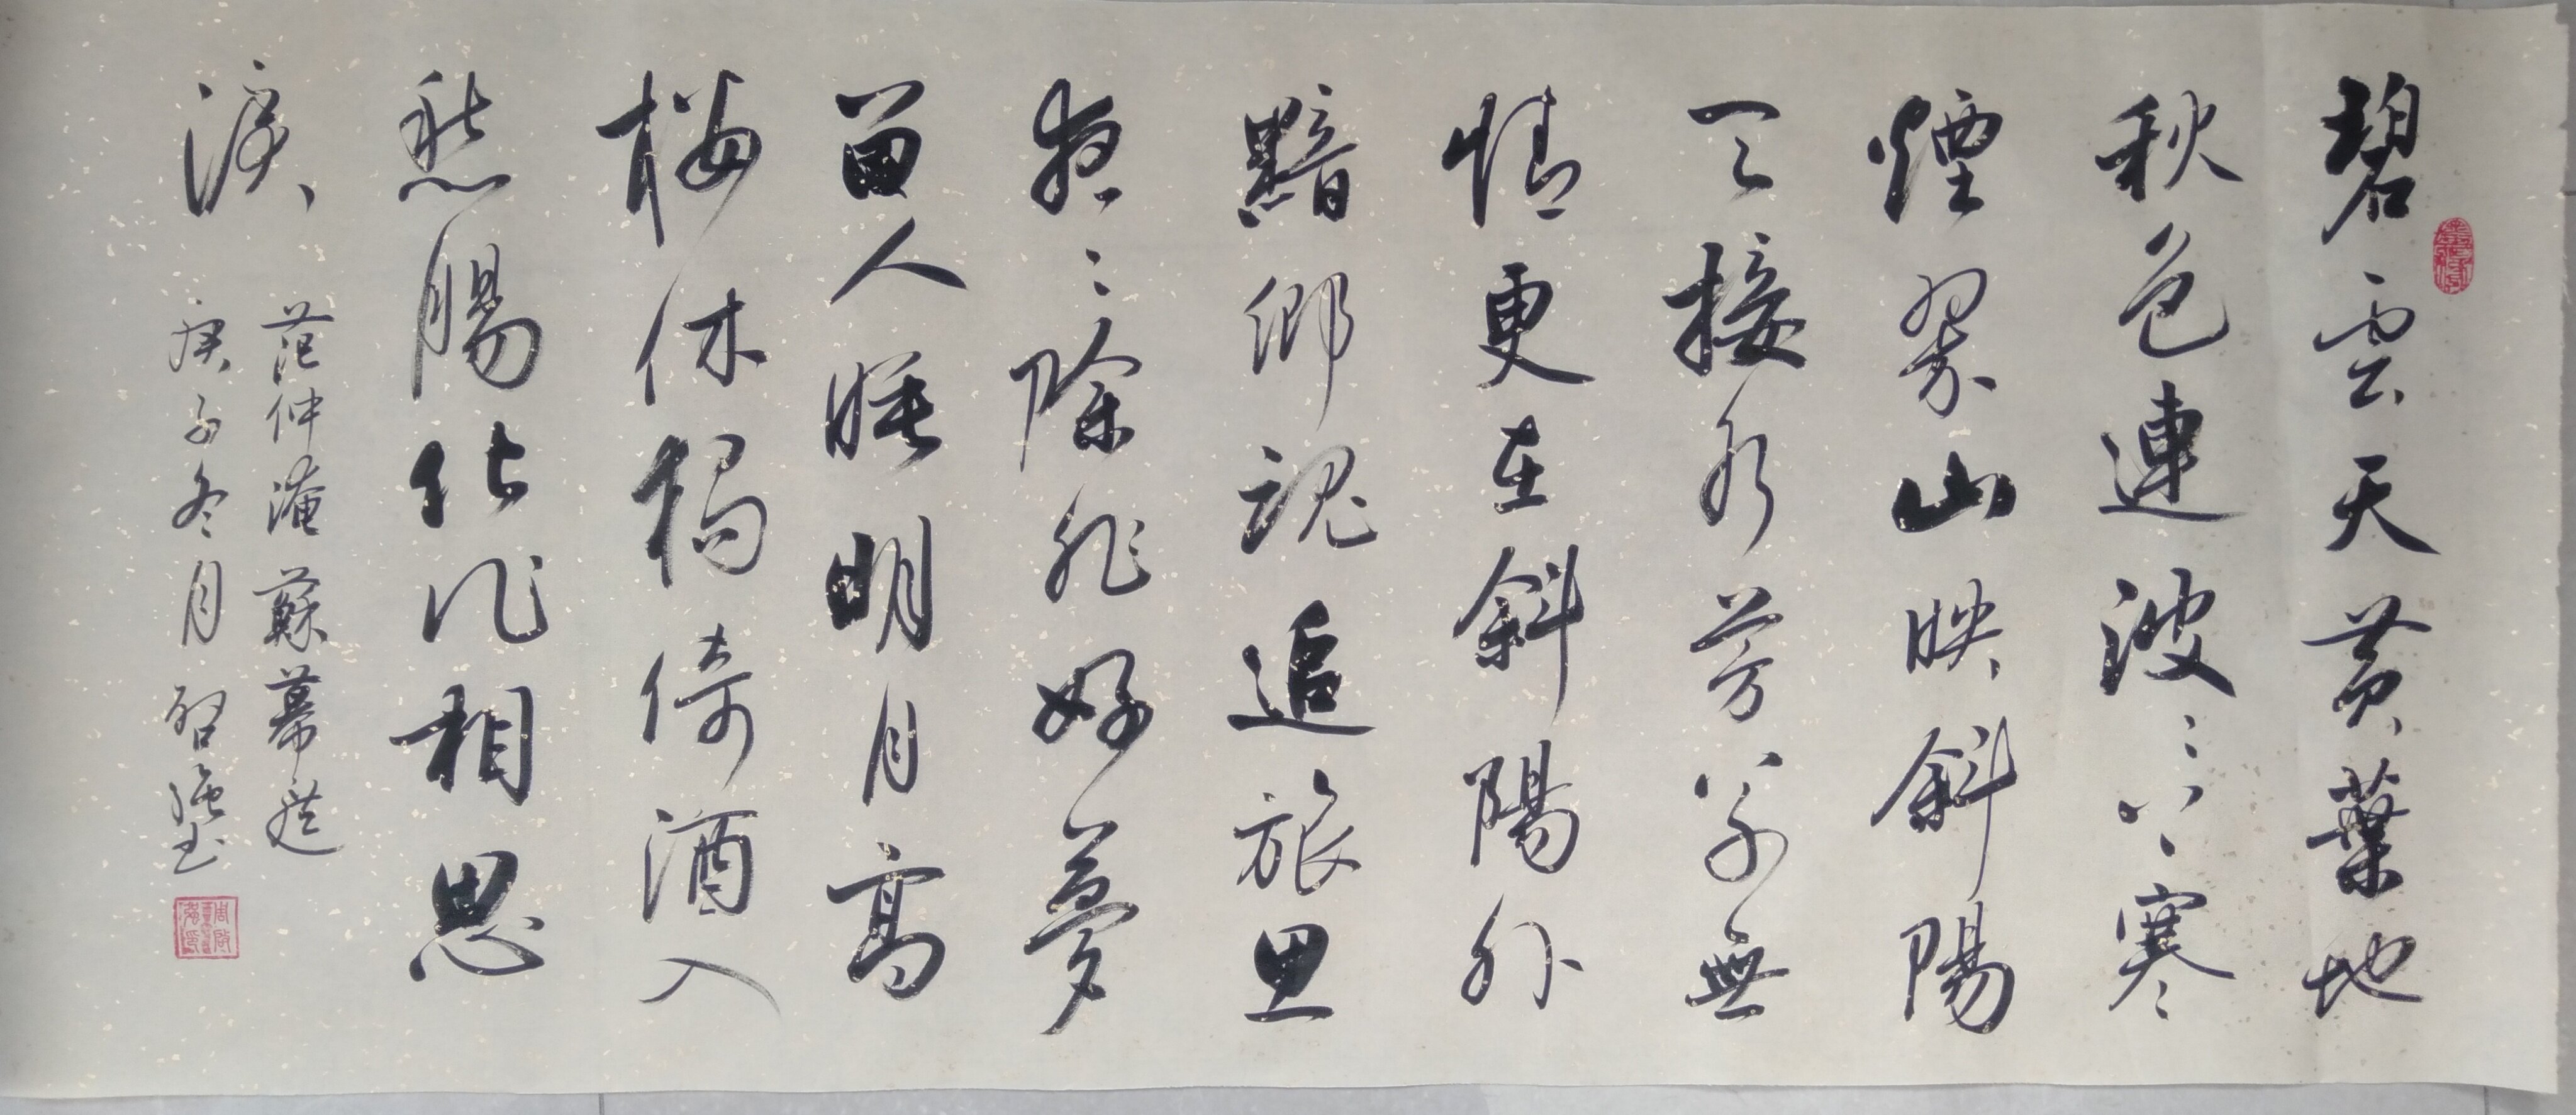 碧雲天黄葉地
秋色連波波上寒
煙翠山映斜陽
天接水芳草無
情更在斜陽外
黯鄉魂追旅思
夜夜除非好夢
留人睡明月高
樓休獨倚酒入
愁腸化作相思
淚
范仲淹蘇幕遮
庚子冬月啓強書